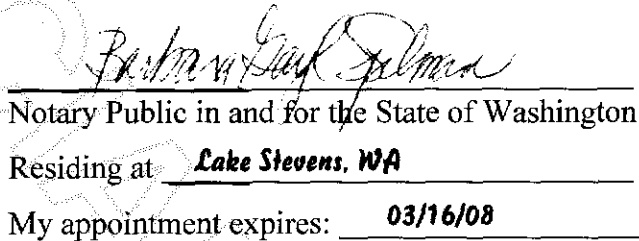 Barbara Gayl
Notary Public in and for the State of Washington
Residing at Lake Stevens, WA
My appointment expires: 03/16/08